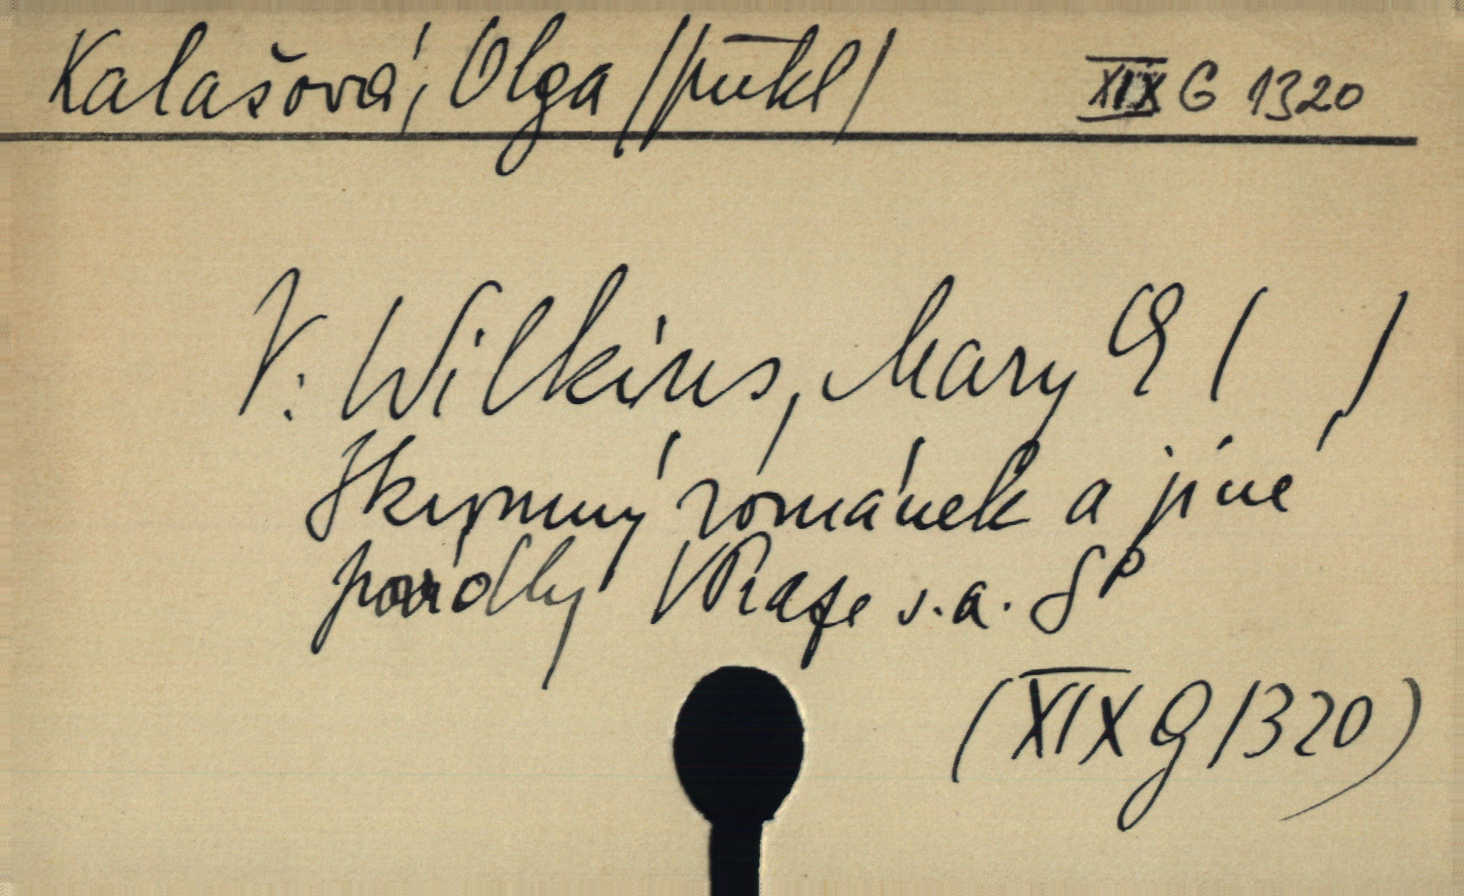 Kalašová, Olga /překl/ XIX G 1320
V: Wilkins, Mary E ( )
Skromný románek a jiné
povídky V Praze s.a. 8°
(XIX G 1320)